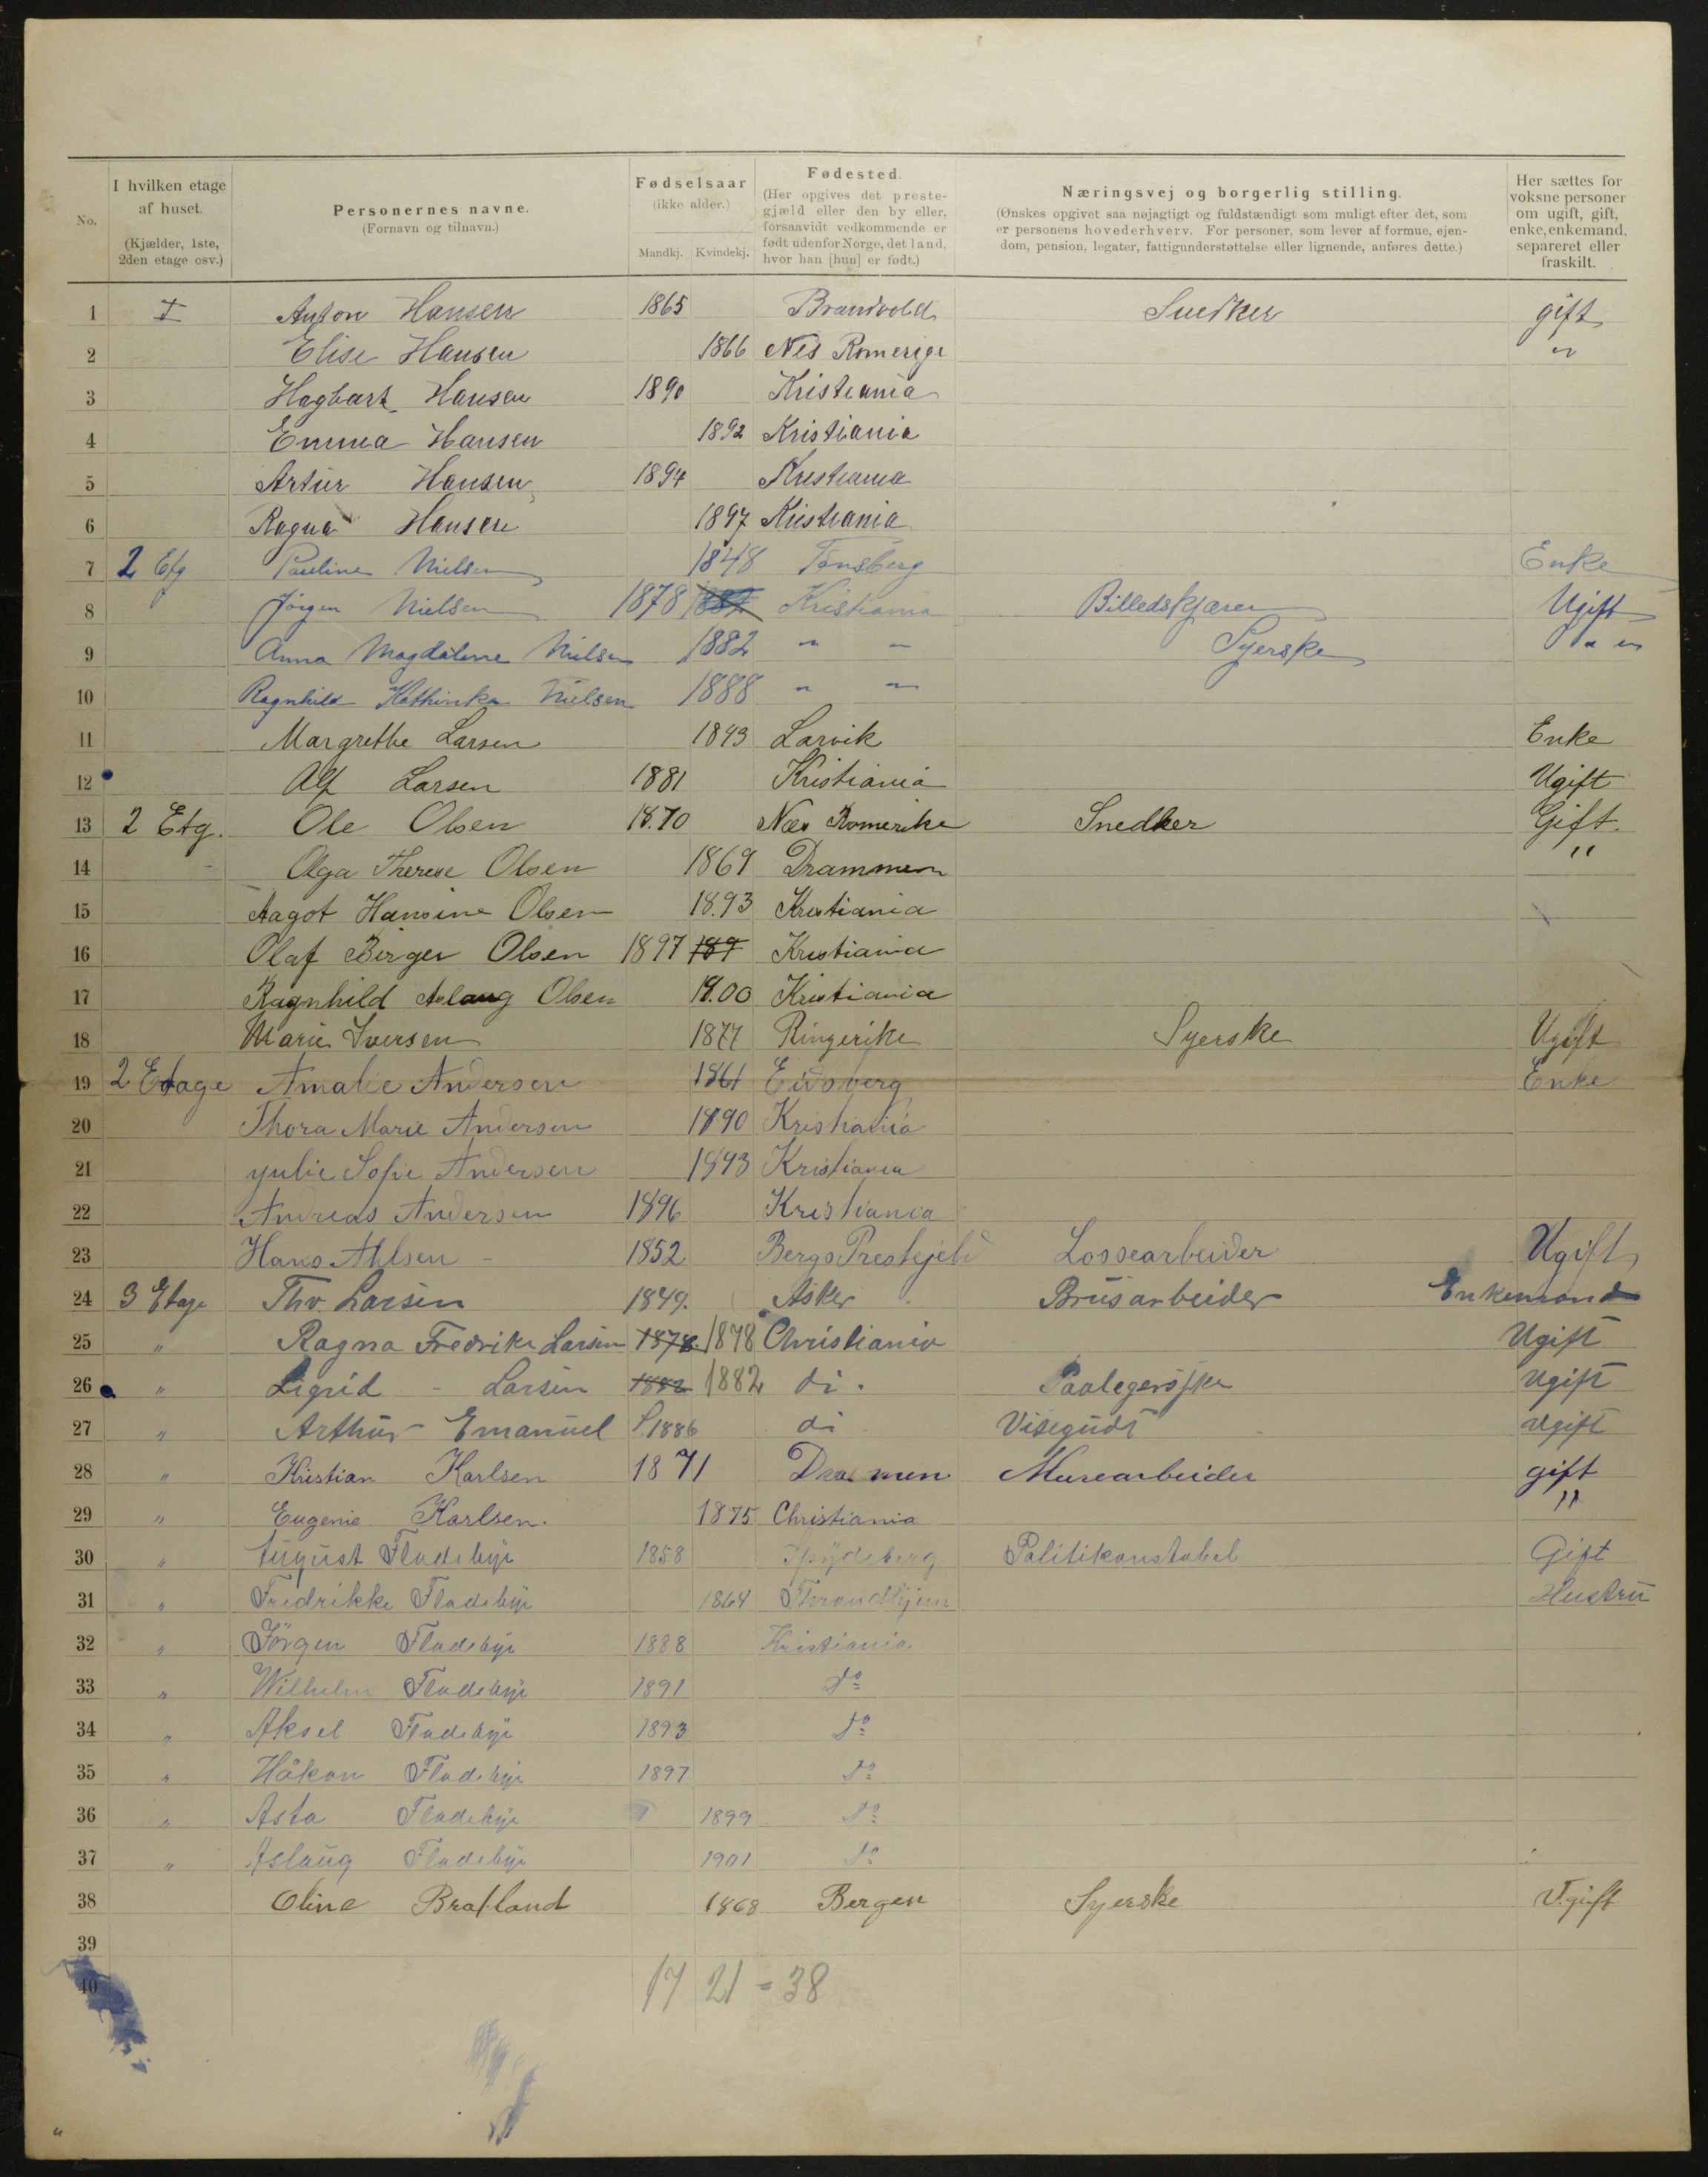 No.
I hvilken etage af huset. (Kjælder, 1ste, 2den etage osv.)
Personernes navne. (Fornavn og tilnavn.)
Fødselsaar (ikke alder.) Mandkj. Kvindekj.
Fødested. (Her opgives det prestegjæld eller den by eller, forsaavidt vedkommende er født udenfor Norge, det land, hvor han [hun] er født.)
Næringsvej og borgerlig stilling. (Ønskes opgivet saa nøjagtigt og fuldstændigt som muligt efter det, som er personens hovederhverv. For personer, som lever af formue, ejendom, pension, legater, fattigunderstøttelse eller lignende, anføres dette.)
Her sættes for voksne personer om ugift, gift, enke, enkemand, separeret eller fraskilt.
1 I Anton Hansen 1865 Brandvold Snedker gift
2 Elise Hansen 1866 Nes Romerige "
3 Hagbart Hansen 1890 Kristiania
4 Emma Hansen 1892 Kristiania
5 Artur Hansen 1894 Kristiania
6 Ragna Hansen 1897 Kristiania
7 2 Etg Pauline Nielsen 1848 Tønsberg Enke
8 Jörgen Nielsen 1878 Kristiania Billedskjærer Ugift
9 Anna Magdalene Nielsen 1882 " " Syerske " "
10 Ragnhild Kathinka Nielsen 1888 " "
11 Margrethe Larsen 1843 Larvik Enke
12 Alf Larsen 1881 Kristiania Ugift
13 2 Etg. Ole Olsen 18.70 Næs Romerike Snedker Gift.
14 Olga Therese Olsen 1869 Drammen "
15 Aagot Hansine Olsen 18.93 Kristiania
16 Olaf Birger Olsen 1897 189 Kristiania
17 Ragnhild Aslaug Olsen 19.00 Kristiania
18 Marie Iversen 1877 Ringerike Syerske Ugift
19 2 Etage Amalie Andersen 1861 Eidsberg Enke
20 Thora Marie Andersen 1890 Kristiania
21 Yulie Sofie Andersen 1893 Kristiania
22 Andreas Andersen 1896 Kristiania
23 Hans Ahlsen - 1852 Bergs Prestejeld Lossearbeider Ugift
24 3 Etage Thv. Larsen 1849. Asker Brusarbeider Enkemand
25 " Ragna Fredrike Larsen 1878. 1878 Christiania Ugift
26 " Sigrid - Larsen 1882 1882 di. Ugift
27 " Arthur Emanuel 1886 di Visegudt ugift
28 " Kristian Karlsen 1871 Dramen Murearbeider gift
29 " Eugenie Karlsen. 1875 Christiania "
30 " August Fladebye 1858 Spydeberg Politikonstabel Gift
31 " Fredrikke Fladebye 1864 Throndhjem Hustru
32 " Jörgen Fladebye 1888 Kristiania
33 " Wilhelm Fladebye 1891 Do
34 " Aksel Fladebye 1893 Do
35 " Håkon Fladebye 1897 Do
36 " Asta Fladebye 1899 Do
37 " Aslaug Fladebye 1901 Do
38 Oline Bratland 1868 Bergen Syerske Ugift
39
40
17 21 = 38